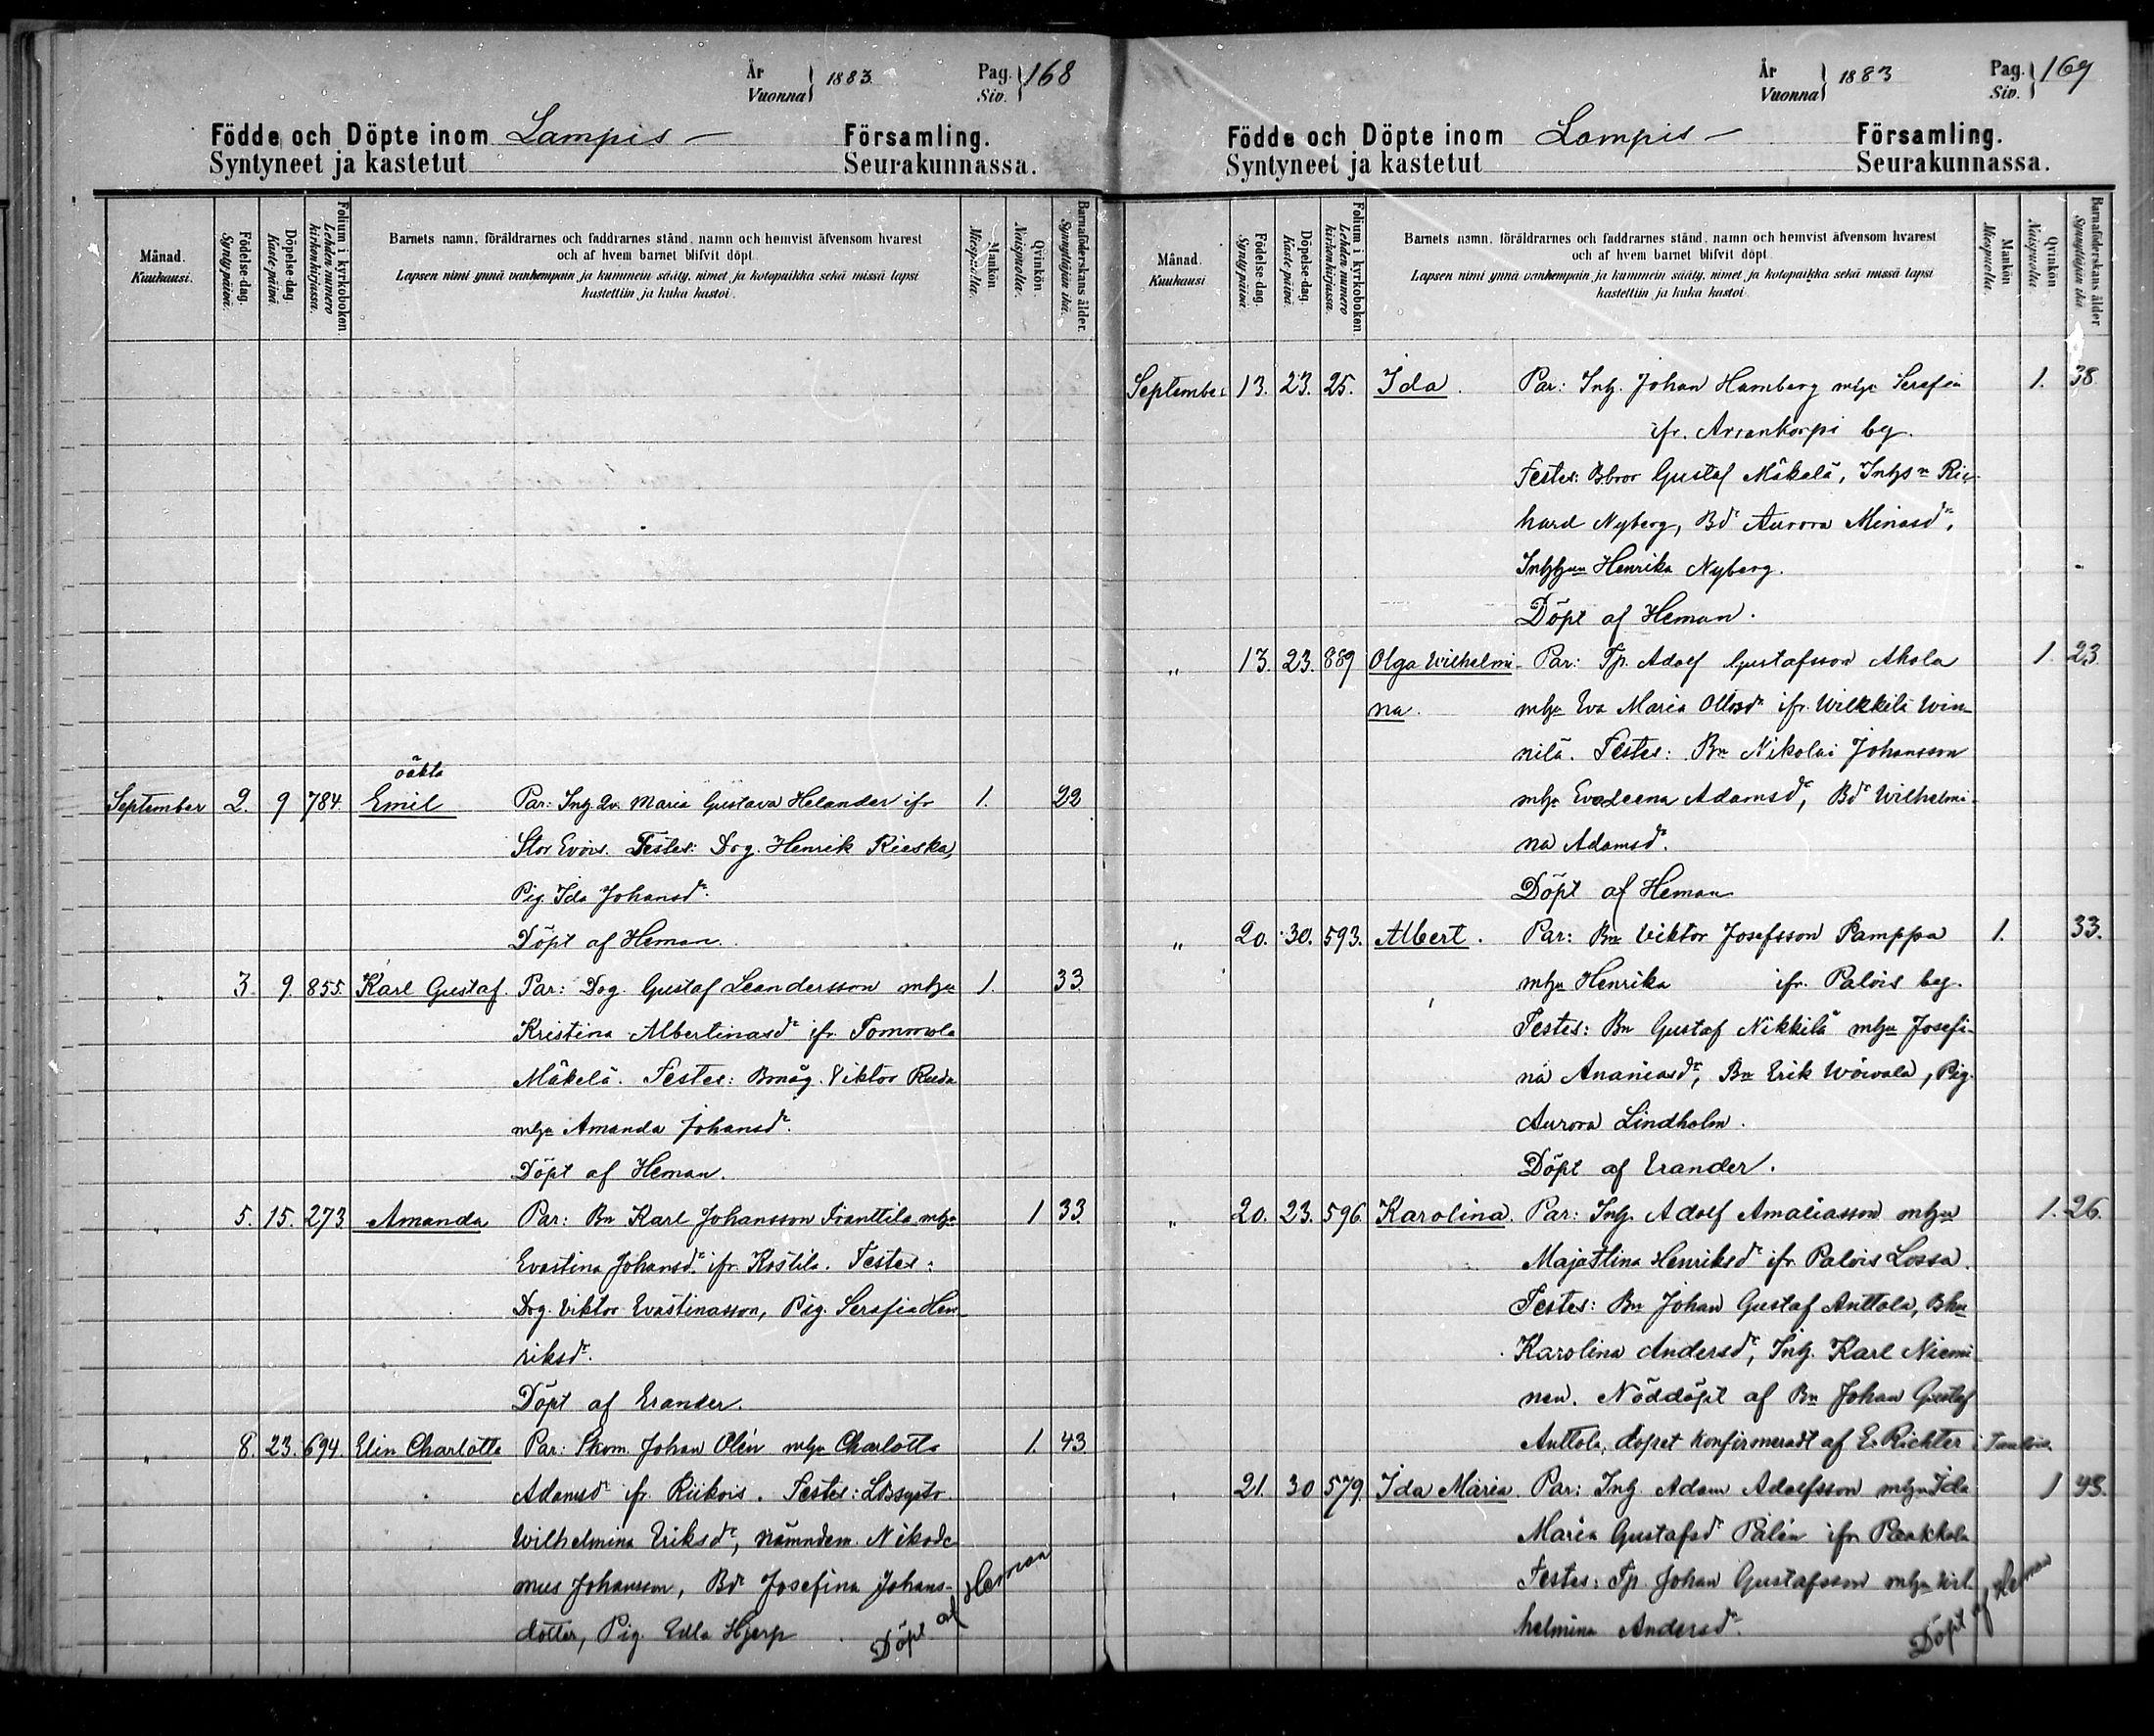 År
Vuonna } 1883.
Pag.
Siv. } 168
Födde och Döpte inom Lampis – Församling.
Syntyneet ja kastetut Seurakunnassa.
Månad.
Kuukausi.
Födelse-dag.
Syntypäivä.
Döpelse-dag
Kastepäivä.
Folium i kyrkoboken.
Lehden numero
kirkonkirjassa.
Barnets namn, föräldrarnes och faddrarnes stånd, namn och hemvist äfvensom hvarest
och af hvem barnet blifvit döpt.
Lapsen nimi ynnä vanhempain ja kummein sääty, nimet ja kotopaikka sekä missä lapsi
kastettiin ja kuka kastoi.
Mankön
Miespuolia.
Qvinkön.
Naispuolia.
Barnaföderskans ålder.
Synnyttäjän ikä.
oäkta
September 2. 9 784. Emil Par: Inh. Qv. Maria Gustava Helander ifr 1. 22
Stor Evois. Testes: Dog. Henrik Rieska,
Pig. Ida Johansdr.
Döpt af Heman.
" 3. 9. 855. Karl Gustaf. Par: Dog. Gustaf Leandersson mhu 1. 33
Kristina Albertinasdr ifr Tommola
Mäkelä. Testes: Bmåg. Viktor
mhu Amanda Johansdr.
Döpt af Heman.
" 5. 15. 273 Amanda Par: Bn Karl Johansson Iivanttila mhu 1 33
Evastina Johansdr. ifr Kostila. Testes:
Dog. Viktor Evastinasson, Pig. Serafia Hen-
riksdr.
Döpt af Erander.
" 8. 23. 694. Elin Charlotta Par: Skom. Johan Olén mhu Charlotta 1. 43
Adamsdr ifr Riikois. Testes:
Wilhelmina Eriksdr, nämndem. Nikode-
mus Johansson, Bdr Josefina Johans-
dotter, Pig. Edla Hjerp. Döpt af Heman
År
Vuonna } 1883
Pag.
Siv. } 169
Födde och Döpte inom Lampis – Församling.
Syntyneet ja kastetut Seurakunnassa.
Månad.
Kuukausi
Födelse-dag.
Syntypäivä
Döpelse-dag.
Kastepäivä.
Folium i kyrkoboken.
Lehden numero
kirkonkirjassa.
Barnets namn, föräldrarnes och faddrarnes stånd, namn och hemvist äfvensom hvarest
och af hvem barnet blifvit döpt.
Lapsen nimi ynnä vanhempain ja kummein sääty, nimet ja kotopaikka sekä missä lapsi
kastettiin ja kuka kastoi.
Mankön
Miespuolia.
Qvinkön
Naispuolia
Barnaföderskans ålder
Synnyttäjän ikä
September 13. 23. 25. Ida. Par: Inh. Johan Hamberg mhu Serafia 1. 38
ifr. Arrankorpi by.
Testes: Bbror Gustaf Mäkelä, Inhsn Ric-
hard Nyberg, Bdr Aurora Minasdr,
Henrika Nyberg.
Döpt af Heman.
" 13. 23. 889 Olga Wilhelmi- Par: Tp. Adolf Gustafsson Ahola 1. 23.
na. mhu Eva Maria Ottosdr ifr. Wilkkilä Win-
nilä. Testes: Bn Nikolai Johansson
mhu Evaleena Adamsdr, Bdr Wilhelmi-
na Adamsdr.
Döpt af Heman
" 20. 30. 593. Albert. Par: Bn Viktor Josefsson Pamppa 1. 33.
mhu Henrika ifr. Palois by.
Testes: Bn Gustaf Nikkilä mhu Josefi-
na Ananiasdr, Bn Erik Woivala, Pig.
Aurora Lindholm.
Döpt af Erander.
" 20. 23. 596 Karolina. Par: Inh. Adolf Amaliasson mhu 1. 26.
Majastina Henriksdr ifr Palois Lossa.
Testes: Bn Johan Gustaf Anttola, Bhu
Karolina Andersdr, Inh. Karl Niemi-
nen. Nöddöpt af Bn Johan Gustaf
Anttola, dopet konfirmeradt af E. Richter i
" 21. 30 579. Ida Maria. Par: Inh. Adam Adolfsson mhu Ida 1 43.
Maria Gustafsdr Palén ifr Paakkola
Testes: Tp. Johan Gustafsson mhu Wil-
helmina Andersdr. Döpt af Heman